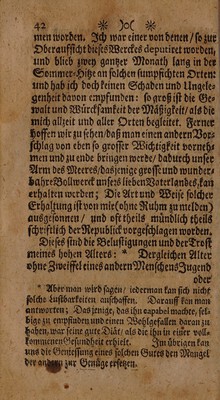 42
men worden. Ich war einer von denen / so zur
Oberauffsicht dieses Werckes deputiret worden,
und blieb zwey gantzer Monath lang in der
Sommer-Hitze an solchen sumpffichten Orten:
und hab ich doch keinen Schaden und Ungele-
genheit davon empfunden: so groß ist die Ge-
walt und Würcksamkeit der Mäßigkeit/ als die
mich allzeit und aller Orten begleitet. Ferner
hoffen wir zu sehen/ daß man einen andern Vor-
schlag von eben so grosser Wichtigkeit vorneh-
men und zu ende bringen werde/ dadurch unser
Arm des Meeres/ das jenige grosse und wunder-
bahre Bollwerck unsers lieben Vaterlandes, kan
erhalten werden; Die Art und Weise solcher
Erhaltung ist von mir (ohne Ruhm zu melden)
ausgesonnen / und offt theils mündlich theils
schrifftlich der Republick vorgeschlagen worden.
Dieses sind die Belustigungen und der Trost
meines hohen Alters: * Dergleichen Alter
ohne Zweiffel eines andern Menschens Jugend
oder
* Aber man wird sagen / jederman kan sich nicht
solche Lustbarkeiten auschaffen. Darauff kan man
antworten; Das jenige, das ihn capabel machte, sel-
bige zu empfinden und einen Wohlgefallen daran zu
haben, war seine gute Diät/ als die ihn in einer voll-
kommenen Gesundheit erhielt. Im übrigen kan
uns die Geniessung eines solchen Gutes den Mangel
der andern zur Genüge ersetzen.